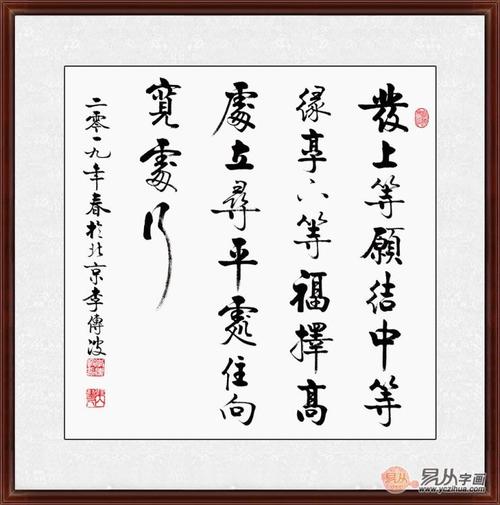 發上等願結中等
緣享下等福擇高
處立尋平處住向
寬處行
二零一九年春於北京李傳波
易从
易从字画
www.yczihua.com